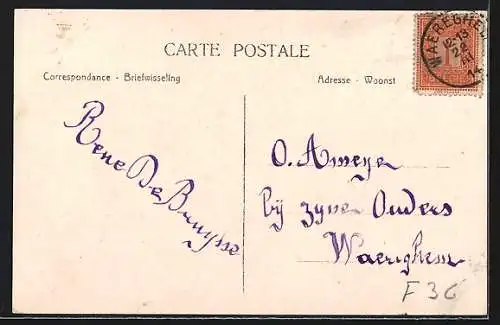 CARTE POSTALE
Correspondance - Briefwisseling
Adresse - Woonst
WAEREGHEM
12-13
22
14
Rene De Bruysse
O. Ameye
bij zyne Ouders
Waereghem
F 36